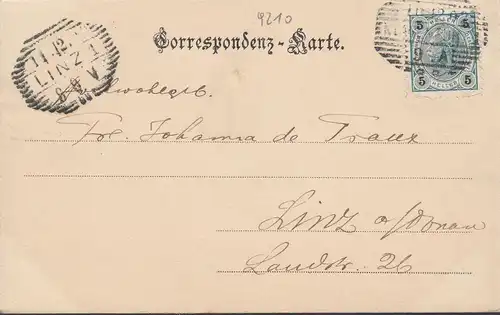 9210
Correspondenz-Karte.
11.12.
LINZ 1
5 5
5 5
Hochwohlgeb.
Frl. Johanna de Traux
Linz a/Donau
Landstr. 26